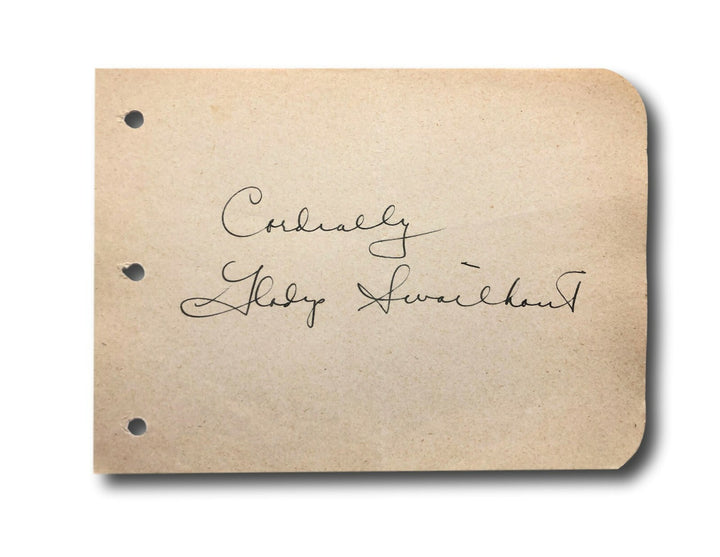 Cordially
Gladys Swarthout